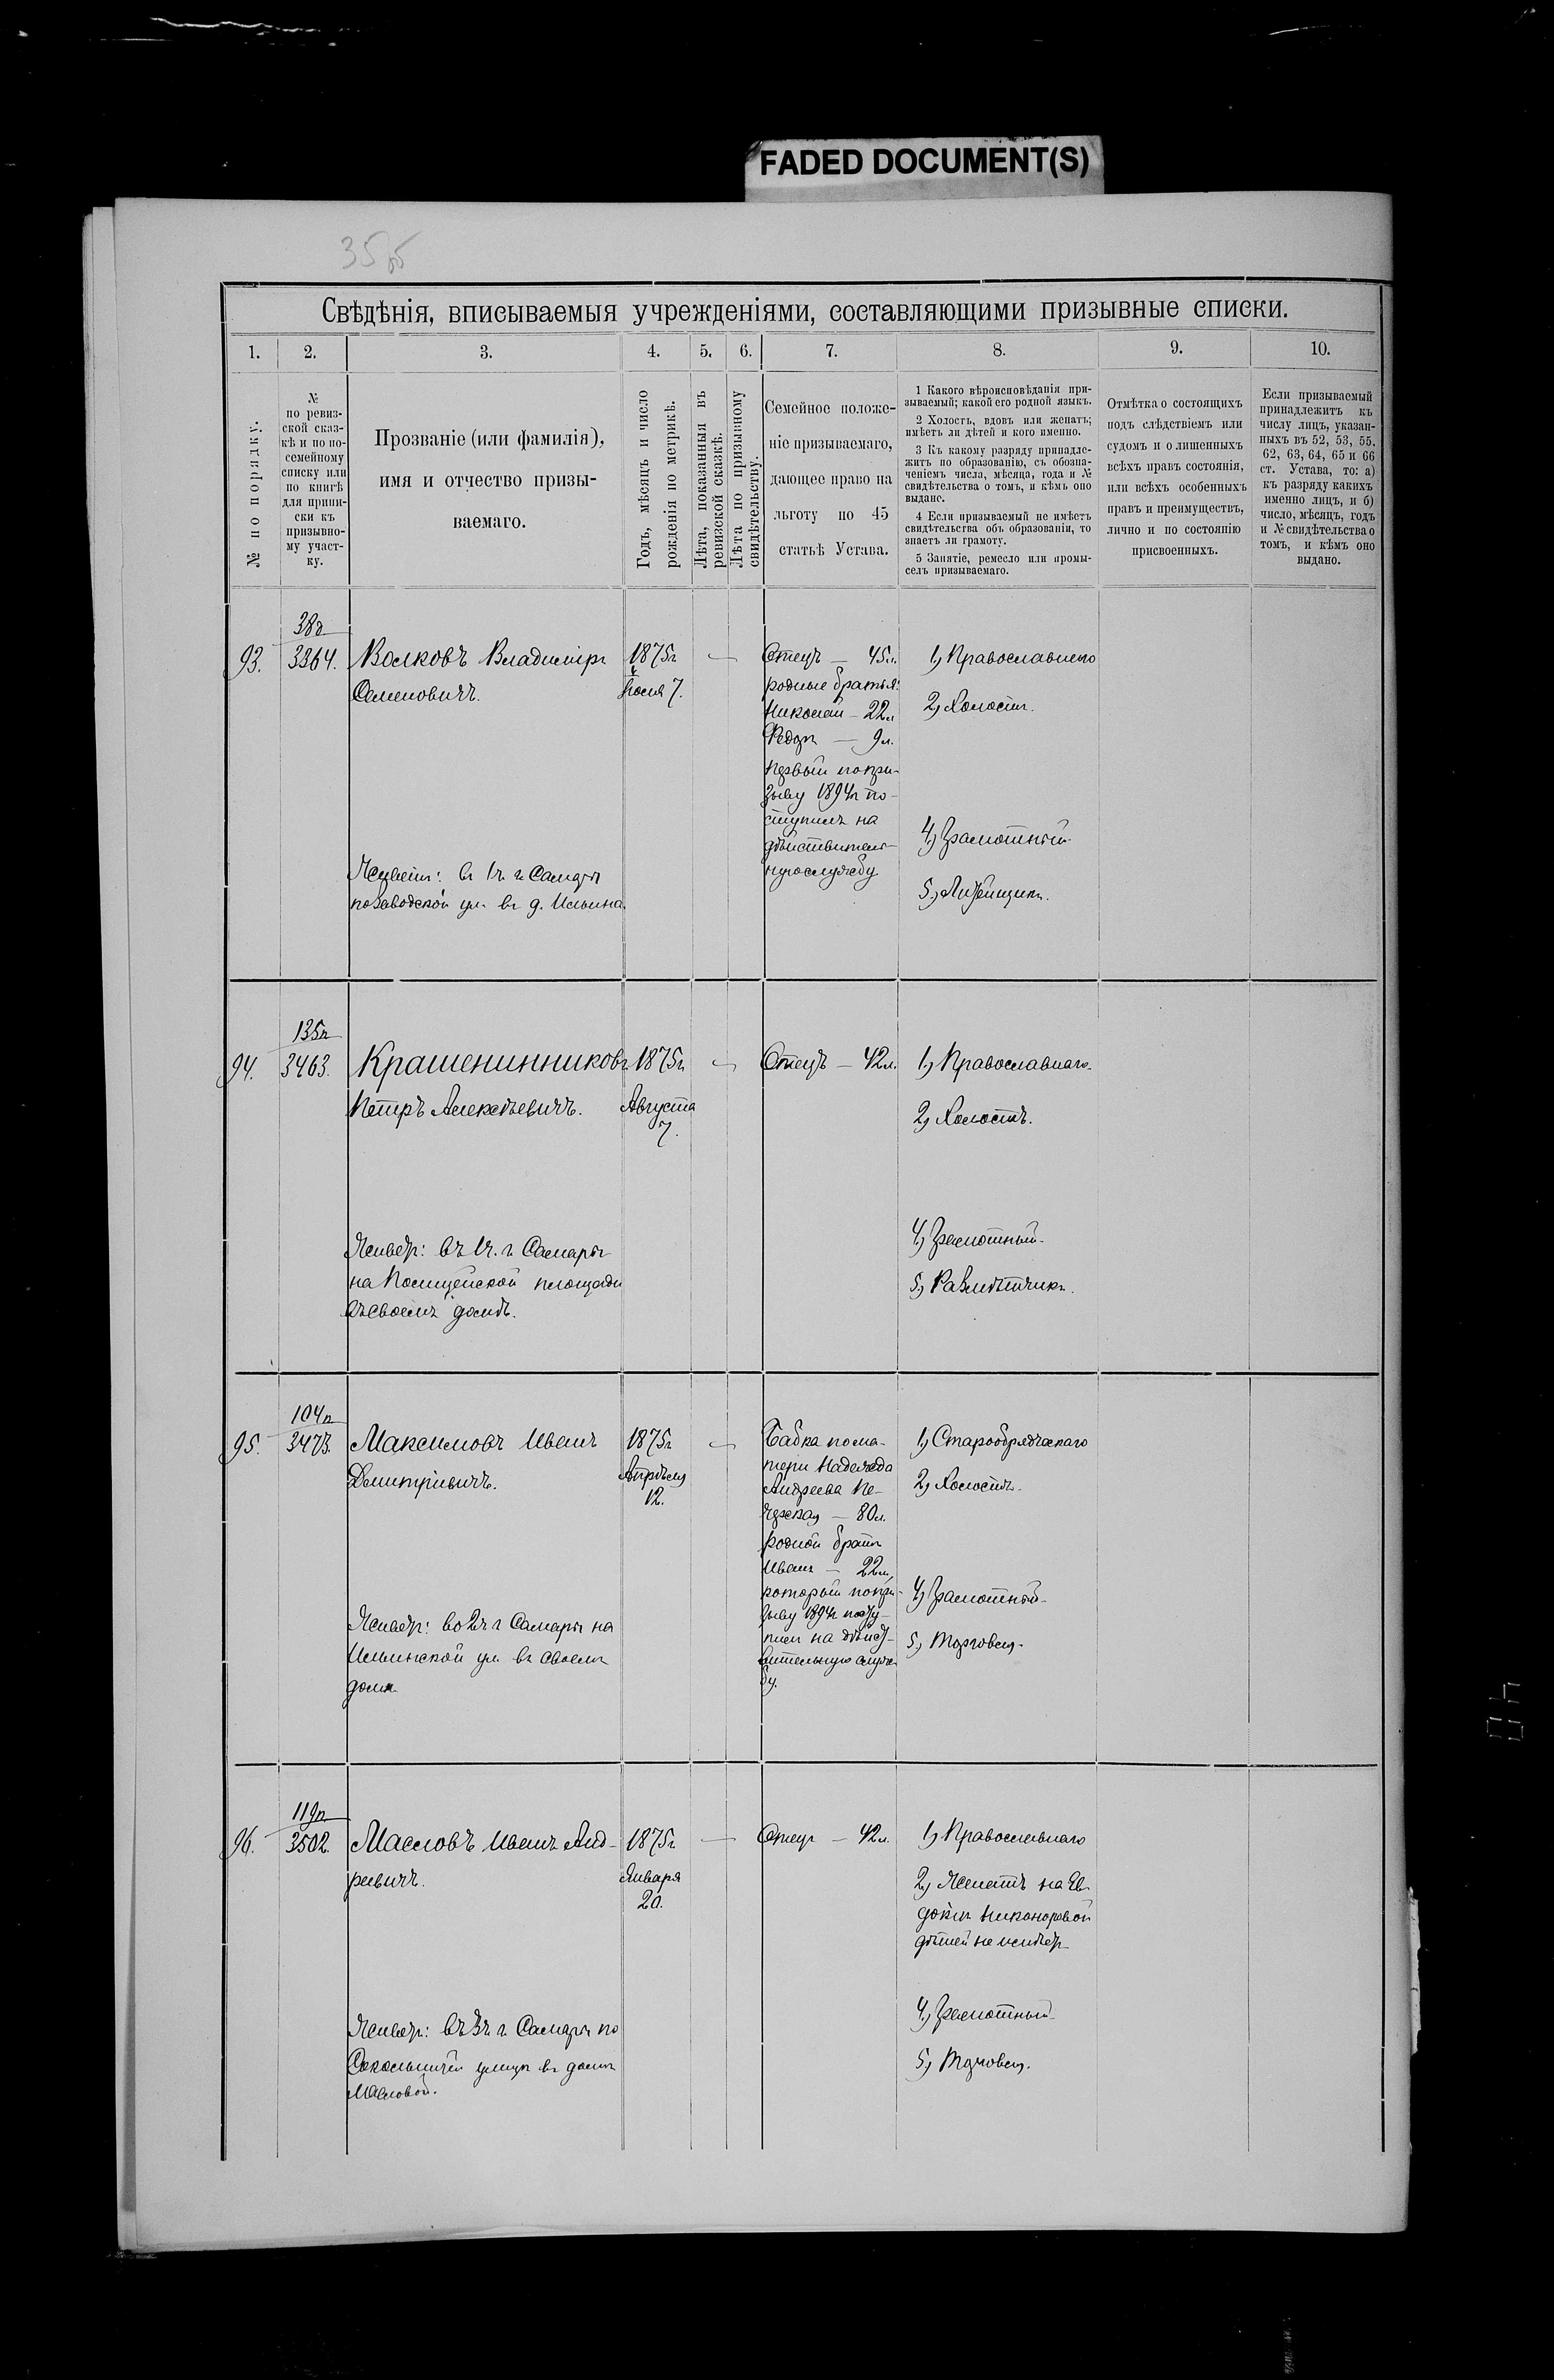 FADED DOCUMENT(S)
Свѣдѣнія, вписываемыя учрежденіями, составляющими призывные списки.
1. 2. 3. 4. 5. 6. 7. 8. 9. 10.
№ по порядку.
№
по ревиз-
ской сказ-
кѣ и по по-
семейному
списку или
по книгѣ
для припи-
ски къ
призывно-
му участ-
ку.
Прозваніе (или фамилія),
имя и отчество призы-
ваемаго.
Годъ, мѣсяцъ и число
рожденія по метрикѣ.
Лѣта, показанныя въ
ревизской сказкѣ.
Лѣта по призывному
свидѣтельству.
Семейное положе-
ніе призываемаго,
дающее право на
льготу по 45
статьѣ Устава.
1 Какого вѣроисповѣданія при-
зываемый; какой его родной языкъ.
2 Холостъ, вдовъ или женатъ;
имѣетъ ли дѣтей и кого именно.
3 Къ какому разряду принадле-
житъ по образованію, съ обозна-
ченіемъ числа, мѣсяца, года и №
свидѣтельства о томъ, и кѣмъ оно
выдано.
4 Если призываемый не имѣетъ
свидѣтельства объ образованіи, то
знаетъ ли грамоту.
5 Занятіе, ремесло или промы-
селъ призываемаго.
Отмѣтка о состоящихъ
подъ слѣдствіемъ или
судомъ и о лишенныхъ
всѣхъ правъ состоянія,
или всѣхъ особенныхъ
правъ и преимуществъ,
лично и по состоянію
присвоенныхъ.
Если призываемый
принадлежитъ къ
числу лицъ, указан-
ныхъ въ 52, 53, 55,
62, 63, 64, 65 и 66
ст. Устава, то: а)
къ разряду какихъ
именно лицъ, и б)
число, мѣсяцъ, годъ
и № свидѣтельства о
томъ, и кѣмъ оно
выдано.
93.
3364.
Волковъ Владиміръ
Семеновичъ.
1875г
Іюля 7.
Отецъ — 45л.
родные братья:
Николай — 22л
Федоръ — 9л.
первый по при-
зыву 1894г по-
ступилъ на
дѣйствитель-
ную службу
1, Православнаго
2, Холостъ.
4, Грамотный
5, Литейщикъ.
въ 1ч. г. Самары
по Заводской ул. въ д. Ильина.
94.
135п
3463.
Крашенинниковъ
Петръ Алексѣевичъ.
1875г
Августа
7.
Отецъ — 42л.
1, Православнаго.
2, Холостъ.
4, Грамотный.
Живетъ: въ 1ч. г. Самары
на Полицейской площади
въ своемъ домѣ.
95.
104п
3473.
Максимовъ Иванъ
Дмитріевичъ.
1875г
Апрѣля
12.
Бабка по ма-
тери Надежда
Андреева
— 80л.
родной братъ
Иванъ — 22л,
который по при-
зыву 1894г посту-
пилъ на дѣйст-
вительную служ-
бу.
1, Старообрядческаго
2, Холостъ.
4, Грамотный
5, Торговля.
Живетъ: во 2ч г Самары на
Ильинской ул. въ своемъ
домѣ
96.
119п
3502.
Масловъ Иванъ Анд-
реевичъ.
1875г
Января
20.
Отецъ — 42л.
1, Православнаго
2, Женатъ на Ев-
докіи Никаноровой
дѣтей не имѣетъ
4, Грамотный
5, Торговля.
Живетъ: въ 3ч г Самары по
Сокольничей улицѣ въ домѣ
Масловой.